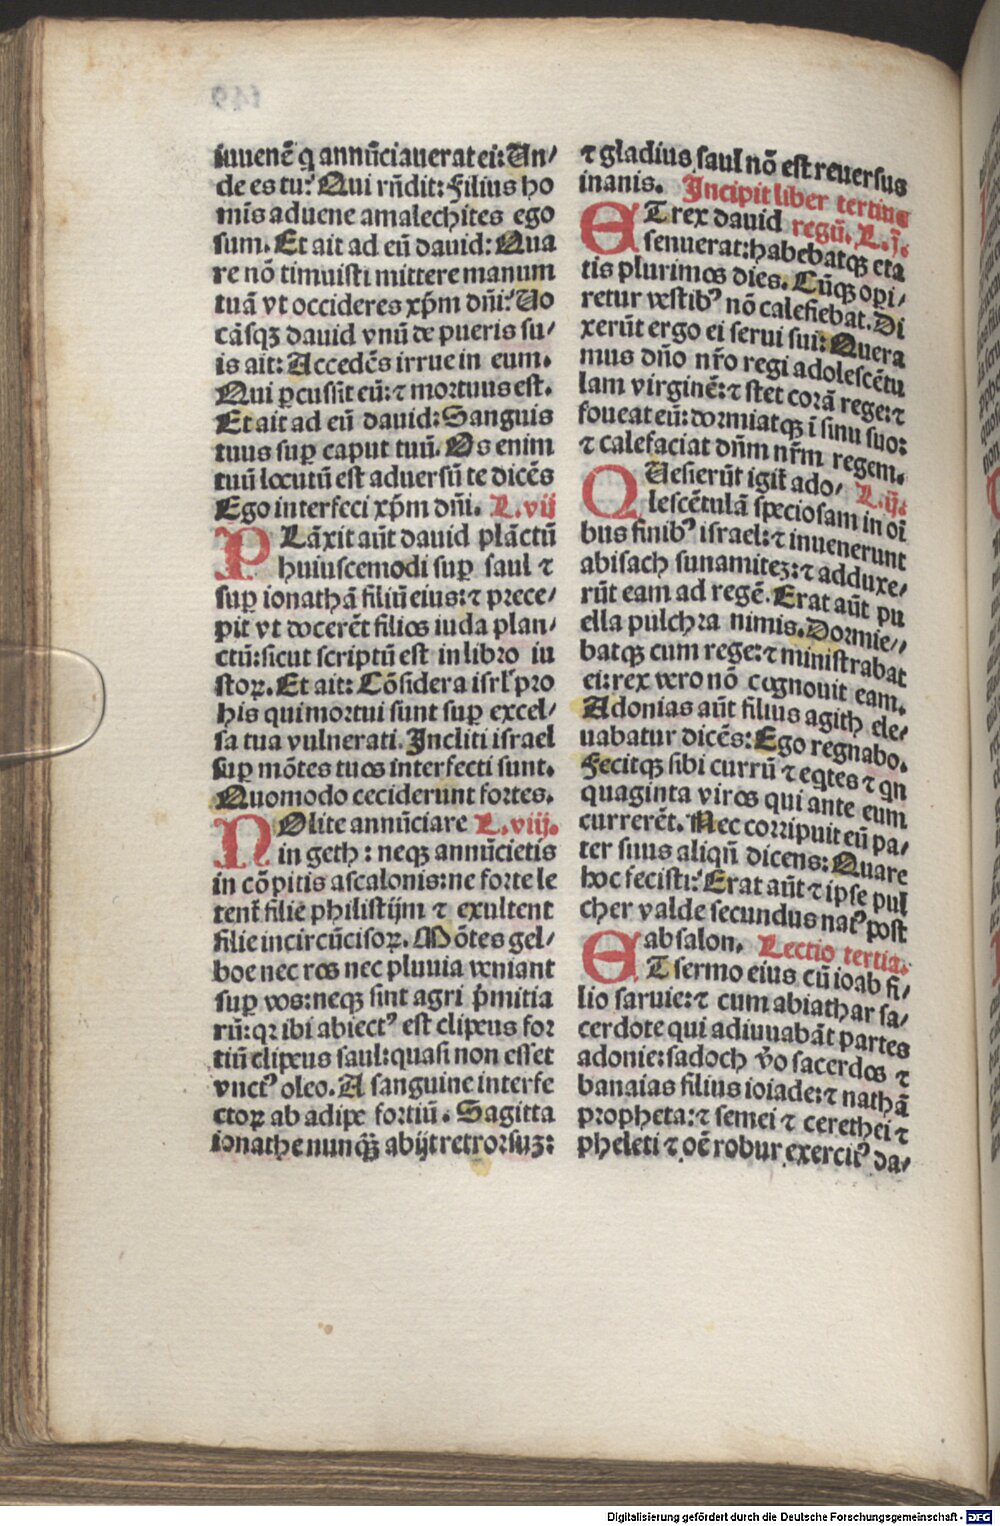 iuuenē q̄ annūciauerat ei: Un/
de es tu? Qui rn̄dit: Filius ho
mīs aduene amalechites ego
sum. Et ait ad eū dauid: Qua
re nō timuisti mittere manum
tuā vt occideres xp̄m dn̄i? Uo
cāsqꝫ dauid vnū de pueris su/
is ait: Accedēs irrue in eum.
Qui ꝑcussit eū: ⁊ mortuus est.
Et ait ad eū dauid: Sanguis
tuus suꝑ caput tuū. Os enim
tuū locutū est aduersū te dicēs
Ego interfeci xp̄m dn̄i. L. vij
PLāxit aūt dauid plāctū
huiuscemodi suꝑ saul ⁊
suꝑ ionathā filiū eius: ⁊ prece/
pit vt docerēt filios iuda plan/
ctū: sicut scriptū est in libro iu
stoꝝ. Et ait: Cōsidera isrl' pro
his qui mortui sunt suꝑ excel/
sa tua vulnerati. Incliti israel
suꝑ mōtes tuos interfecti sunt.
Quomodo ceciderunt fortes.
NOlite annūciare L. viij.
in geth: neqꝫ annūcietis
in cōpitis ascalonis: ne forte le
tent̄ filie philistijm ⁊ exultent
filie incircūcisoꝝ. Mōtes gel/
boe nec ros nec pluuia veniant
suꝑ vos: neqꝫ sint agri p̄mitia
rū: qꝛ ibi abiectꝰ est clipeus for
tiū clipeus saul: quasi non esset
vnctꝰ oleo. A sanguine interfe
ctoꝝ ab adipe fortiū. Sagitta
ionathe nunqꝫ̄ abijt retrorsuꝫ:
⁊ gladius saul nō est reuersus
inanis. Incipit liber tertius
ET rex dauid regū. L. j.
senuerat: habebatqꝫ eta
tis plurimos dies. Cūqꝫ opi/
retur vestibꝰ nō calefiebat. Di
xerūt ergo ei serui sui: Quera
mus dn̄o nr̄o regi adolescētu
lam virginē: ⁊ stet corā rege: ⁊
foueat eū: dormiatqꝫ ī sinu suo:
⁊ calefaciat dn̄m nr̄m regem.
QUesierūt igit̄ ado/ L. ij.
lescētulā speciosam in oī
bus finibꝰ israel: ⁊ inuenerunt
abisach sunamiteꝫ: ⁊ adduxe/
rūt eam ad regē. Erat aūt pu
ella pulchra nimis. Dormie//
batqꝫ cum rege: ⁊ ministrabat
ei: rex vero nō cognouit eam.
Adonias aūt filius agith ele/
uabatur dicēs: Ego regnabo.
Fecitqꝫ sibi currū ⁊ eq̄tes ⁊ q̄n
quaginta viros qui ante eum
currerēt. Nec corripuit eū pa/
ter suus aliqn̄ dicens: Quare
hoc fecisti? Erat aūt ⁊ ipse pul
cher valde secundus natꝰ post
absalon. Lectio tertia.
ET sermo eius cū ioab fi/
lio saruie: ⁊ cum abiathar sa/
cerdote qui adiuuabāt partes
adonie: sadoch v̄o sacerdos ⁊
banaias filius ioiade: ⁊ nathā
propheta: ⁊ semei ⁊ cerethei ⁊
pheleti ⁊ oē robur exercitꝰ da/
Digitalisierung gefördert durch die Deutsche Forschungsgemeinschaft - DFG